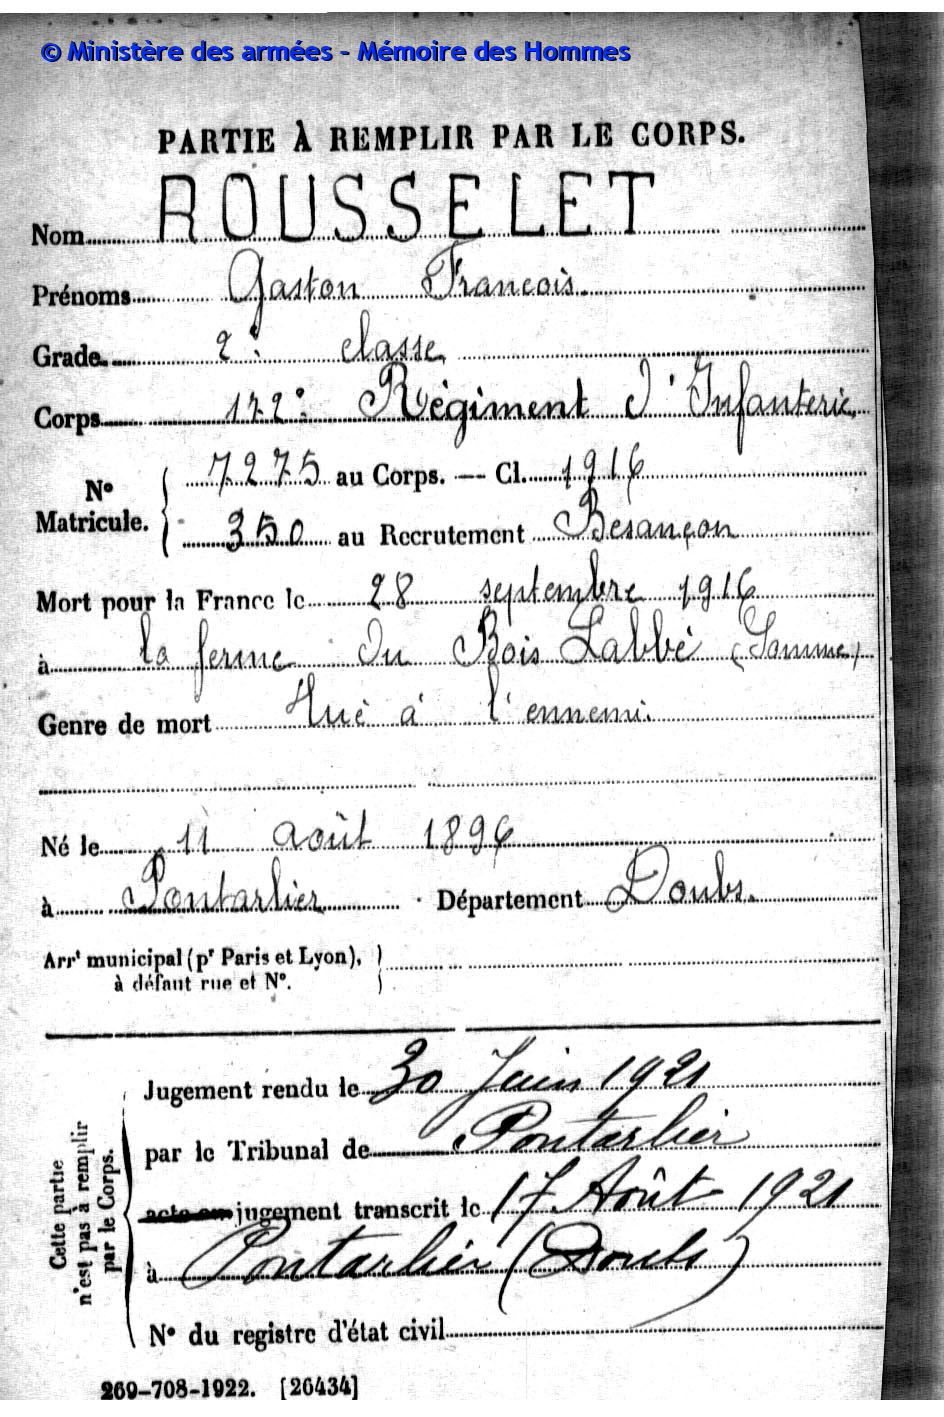 © Ministère des armées - Mémoire des Hommes
PARTIE À REMPLIR PAR LE CORPS.
Nom ROUSSELET
Prénoms Gaston François
Grade 2e classe
Corps 172e Régiment d'Infanterie
N° Matricule. 7275 au Corps. — Cl. 1916
350 au Recrutement Besançon
Mort pour la France le 28 septembre 1916
à la ferme du Bois Labbé (Somme)
Genre de mort Tué à l'ennemi.
Né le 11 août 1896
à Pontarlier Département Doubs.
Arrt municipal (pr Paris et Lyon),
à défaut rue et N°.
Cette partie
n'est pas à remplir
par le Corps.
Jugement rendu le 30 Juin 1921
par le Tribunal de Pontarlier
acte ou jugement transcrit le 17 Août 1921
à Pontarlier (Doubs)
N° du registre d'état civil
269-708-1922. [26434]